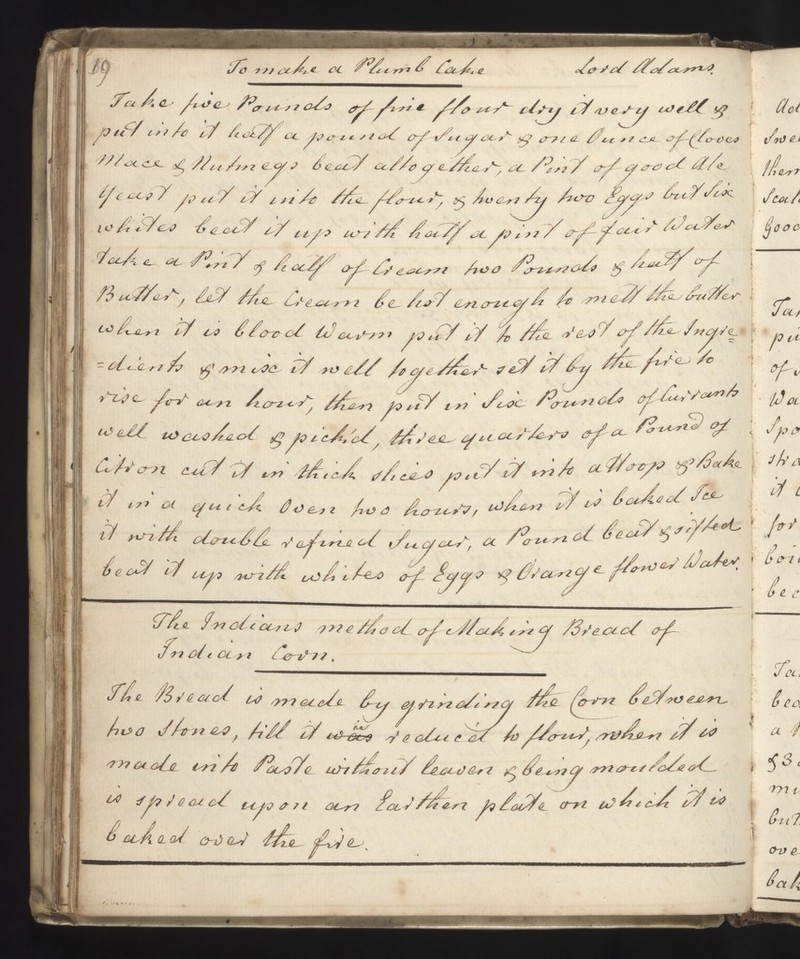 19
To make a Plumb Cake Lord Adams.
Take five Pounds of fine flour dry it very well &
put into it half a pound of Sugar & one Ounce of Cloves
Mace & Nutmegs beat altogether, a Pint of good Ale
Yeast put it into the flour, & twenty two Eggs but Six
whites beat it up with half a pint of fair Water
take a Pint & half of Cream two Pounds & half of
Butter, let the Cream be hot enough to melt the butter
when it is blood Warm put it to the rest of the Ingre=
=dients & mix it well together set it by the fire to
rise for an hour, then put in Six Pounds of Currants
well washed & pick'd, three quarters of a Pound of
Citron cut it in thick slices put it into a Hoop & Bake
it in a quick Oven two hours, when it is baked Ice
it with double refined Sugar, a Pound beat & sifted
beat it up with whites of Eggs & Orange flower Water.
The Indians method of Making Bread of
Indian Corn.
The Bread is made by grinding the Corn between
two Stones, till it was is reduc'd to flour, when it is
made into Paste without leaven & being moulded
is spread upon an Earthen plate on which it is
baked over the fire.